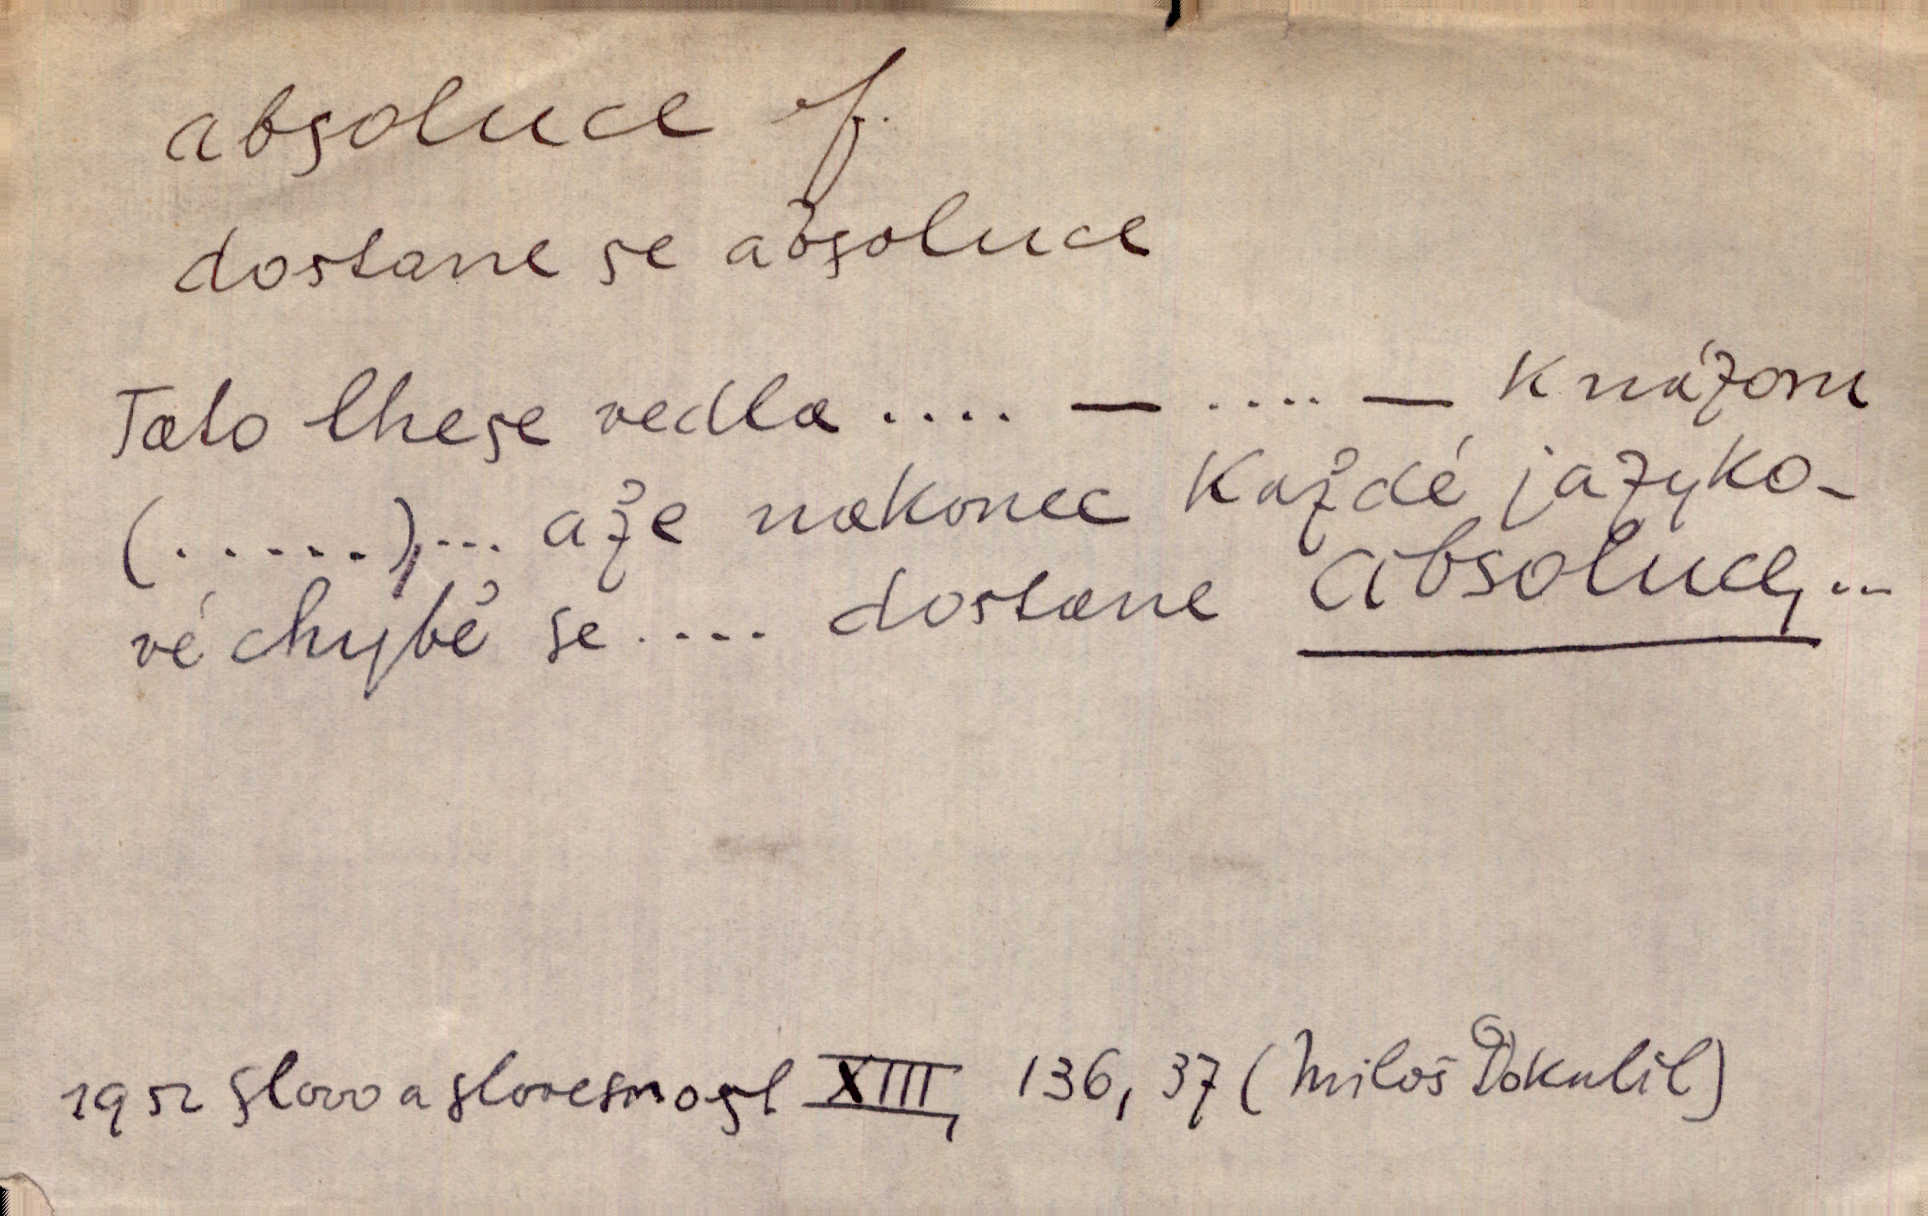 absoluce f.
dostane se absoluce
Tato these vedla .... — .... — k názoru
(.....),... a že nakonec každé jazyko-
vé chybě se .... dostane absoluce, ...
1952 Slovo a slovesnost XIII, 136, 37 (Miloš Dokulil)